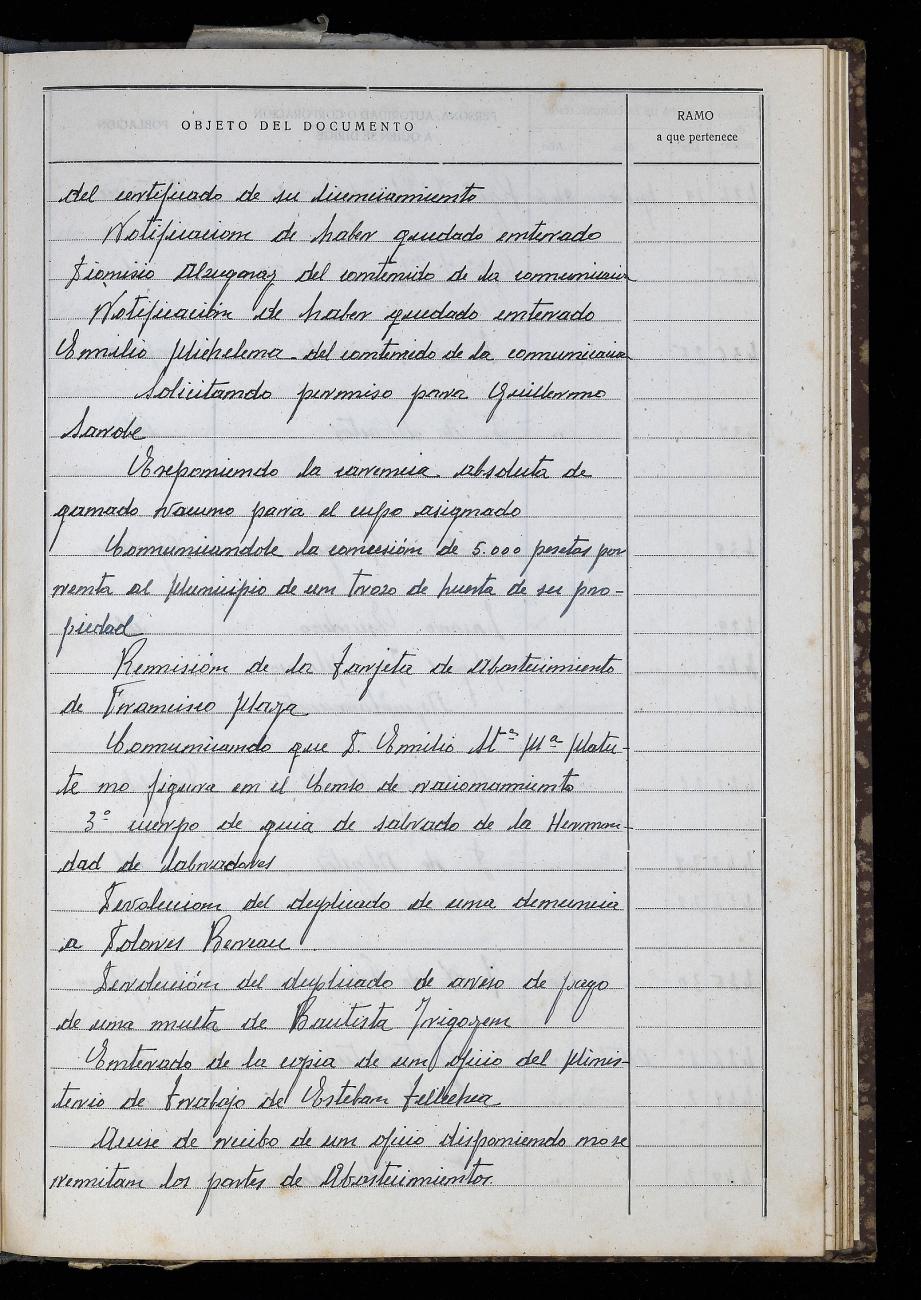 OBJETO DEL DOCUMENTO
RAMO
a que pertenece
del certificado de su licenciamiento
Notificacion de haber quedado enterado
Dionisio Alzugaray del contenido de la comunicacion
Notificación de haber quedado enterado
Emilio Michelena del contenido de la comunicacion
Solicitando permiso para Guillermo
Sarobe
Exponiendo la carencia absoluta de
ganado vacuno para el cupo asignado
Comunicandole la concesión de 5.000 pesetas por
venta al Municipio de un trozo de huerta de su pro-
piedad
Remisión de la Tarjeta de Abastecimiento
de Francisco Plaza
Comunicando que D. Emilio Stª Mª Matu-
te no figura en el Censo de racionamiento
3º cuerpo de guia de salvado de la Herman-
dad de labradores
Devolucion del duplicado de una denuncia
a Dolores Bereau
Devolución del duplicado de aviso de pago
de una multa de Bautista Irigoyen
Enterado de la copia de un oficio del Minis-
terio de Trabajo de Esteban Tellechea
Acuse de recibo de un oficio disponiendo no se
remitan los partes de Abastecimientos